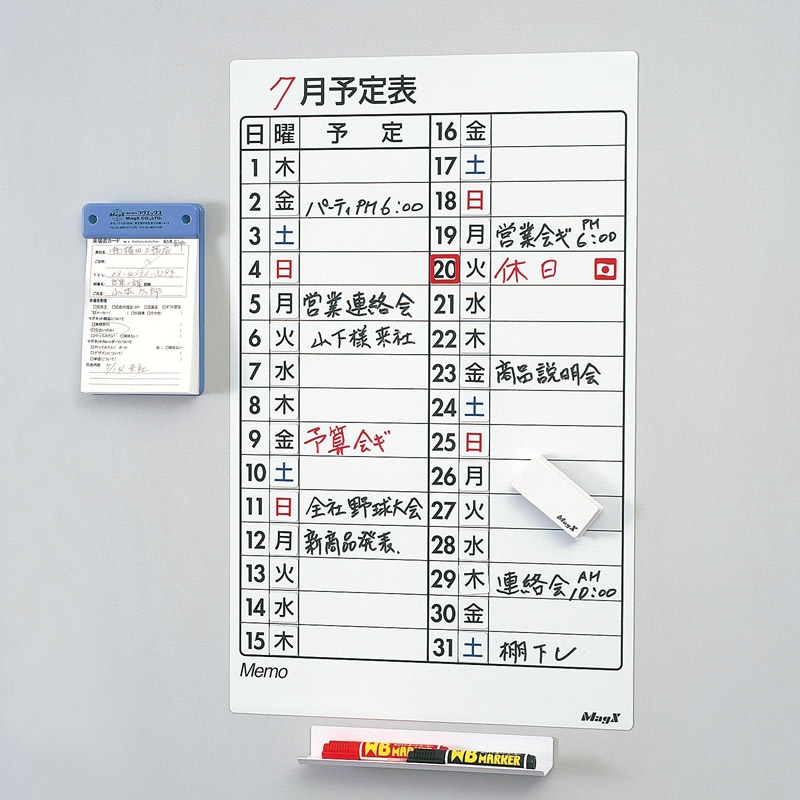 7月予定表
日 曜 予定
1 木
2 金 パーティPM6:00
3 土
4 日
5 月 営業連絡会
6 火 山下様来社
7 水
8 木
9 金 予算会ギ
10 土
11 日 全社野球大会
12 月 新商品発表.
13 火
14 水
15 木
16 金
17 土
18 日
19 月 営業会ギ PM6:00
20 火 休日
21 水
22 木
23 金 商品説明会
24 土
25 日
26 月
27 火
28 水
29 木 連絡会 AM10:00
30 金
31 土 棚下し
Memo
MagX
MagX
MagX 株式会社マグエックス
MagX CO.,LTD.
来場者カード
山本太郎
7/14 来社
WB MARKER
WB MARKER